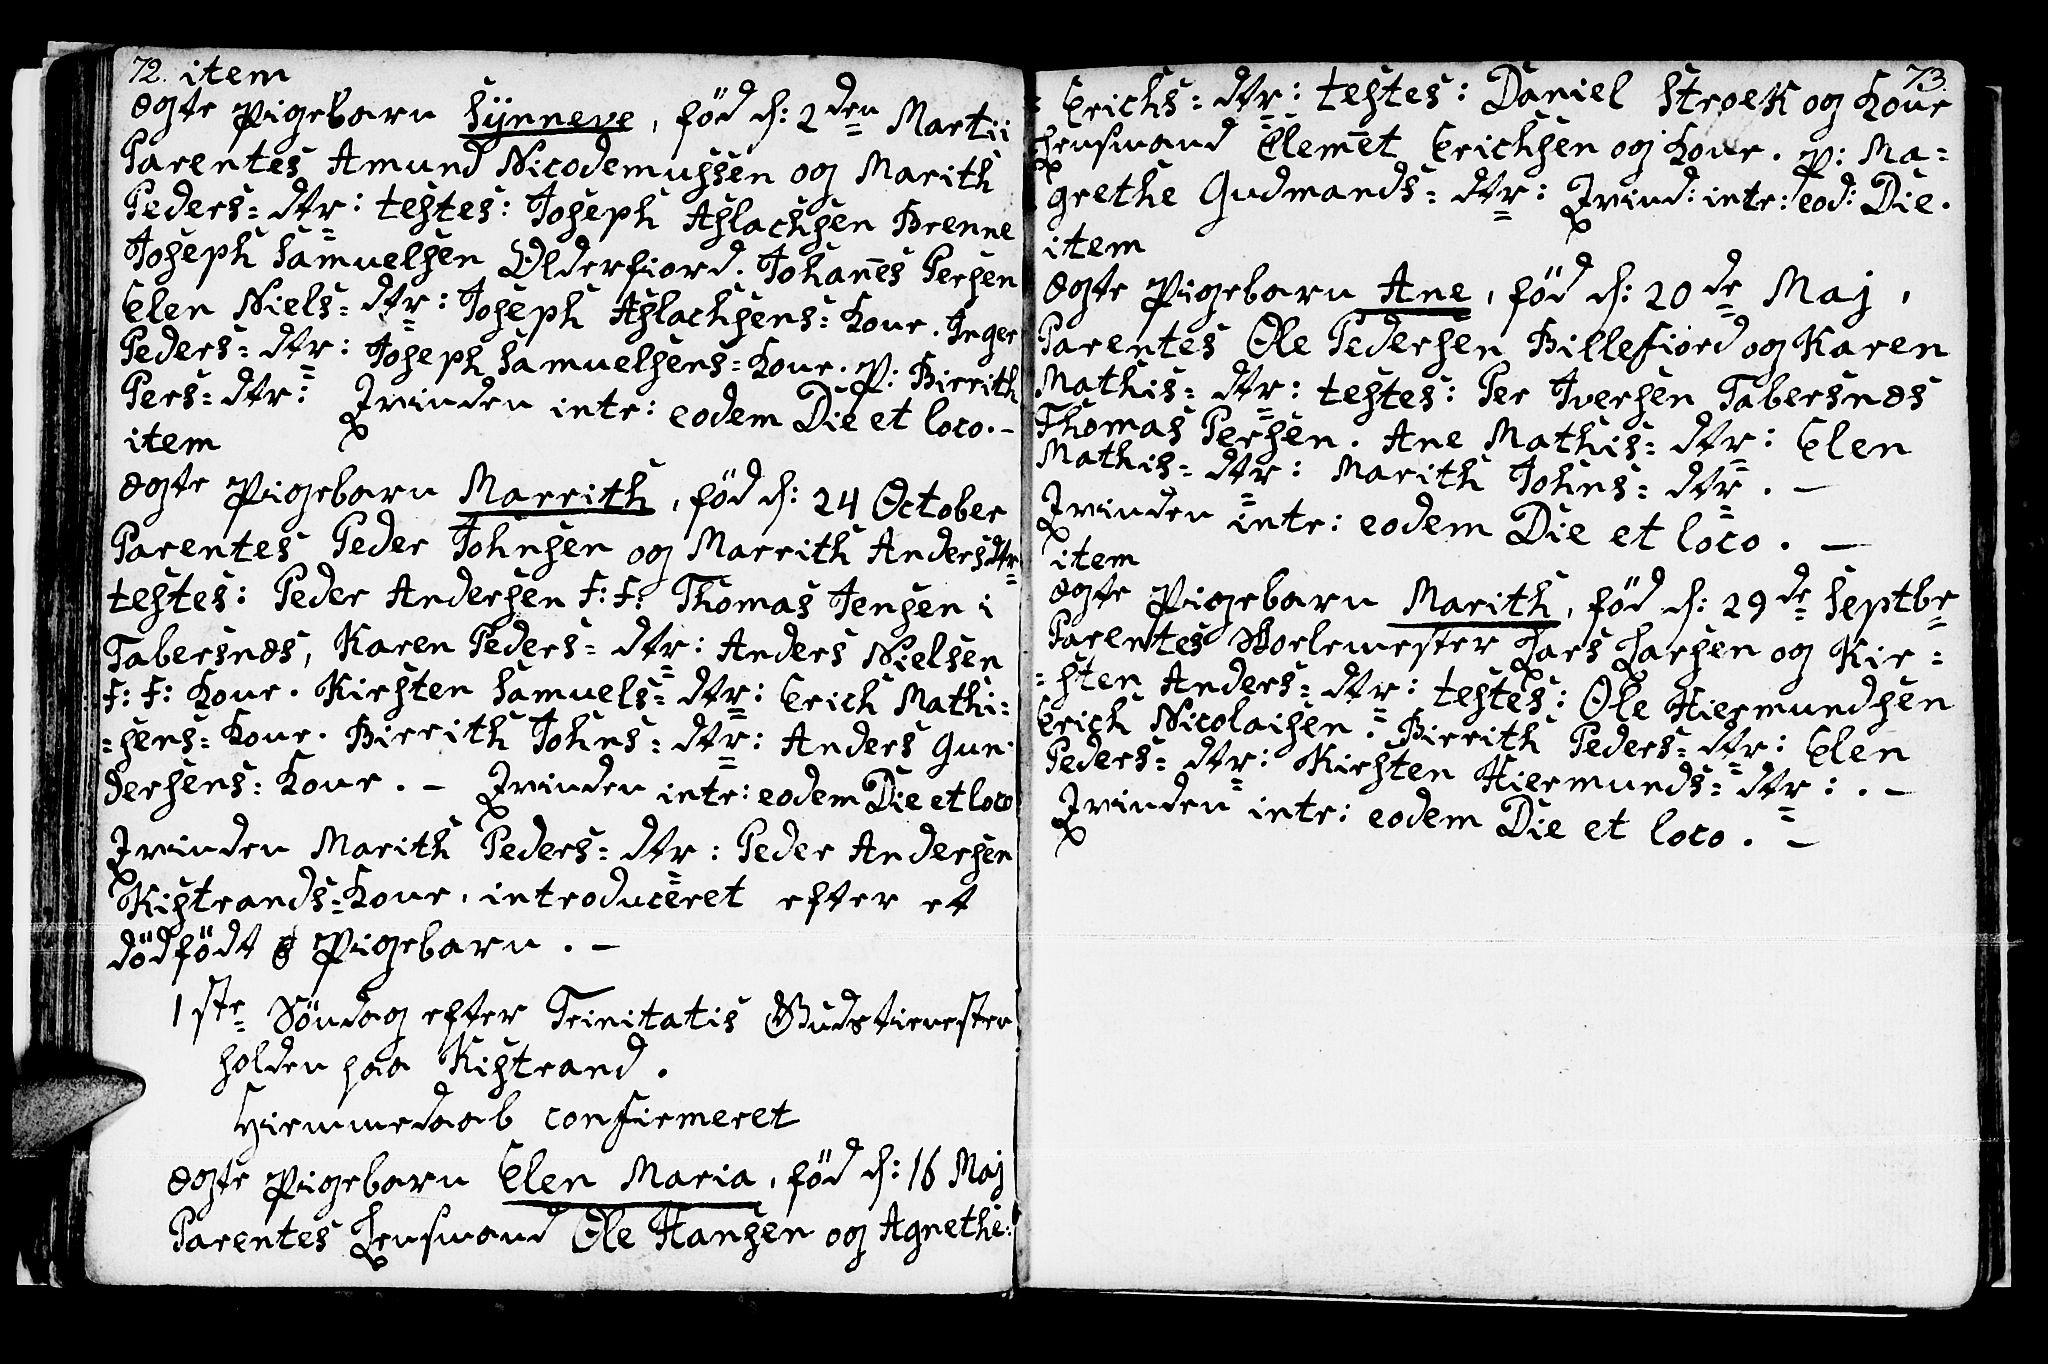 72. item
ægte Pigebarn Sÿnneve, föd d: 2den Martii
Parentes Amund Nicodemussen og Marith
Peders=dtr: testes: Joseph Aslachsen Brenne
Joseph Samuelsen Olderfiord. Johan̄es Persen
Elen Niels=dtr: Joseph Aslachsens=Kone. Inger
Peders=dtr: Joseph Samuelsens=Kone. P: Birrith
Pers=dtr: Qvinden intr: eodem Die et loco.–
item
ægte Pigebarn Marrith, föd d: 24 October
Parentes Peder Johnsen og Marrith Andersdtr
testes: Peder Andersen F: F: Thomas Jensen i
Tabersnæs, Karen Peders=dtr: Anders Nielsen
F: F: Kone. Kirsten Samuels=dtr: Erich Mathi=
=sens=Kone. Birrith Johns=dtr: Anders Gun
dersens=Kone. – Qvinden intr: eodem Die et loco
Qvinden Marith Peders=dtr: Peder Andersen
Kistrands=Kone, introduceret efter et
dödfödt Pigebarn. –
1ste Söndag efter Trinitatis Gudstienesten
holden paa Kistrand.
Hiemmedaab confirmeret
ægte Pigebarn Elen Maria, föd d: 16 Maj
Parentes Lensmand Ole Hansen og Agnethe:
73.
=Erichs=dtr: testes: Daniel Stroek og Kone
Lensmand Clem̄et Erichsen og Kone. P: Ma=
grethe Gudmands=dtr: Qvind: intr: eod: Die.
item
ægte Pigebarn Ane, föd d: 20de Maj,
Parentes Ole Pedersen Billefiord og Karen
Mathis=dtr: testes: Per Iversen Tabersnæs
Thomas Persen. Ane Mathis=dtr: Elen
Mathis=dtr: Marith Johns=dtr. –
Qvinden intr: eodem Die et loco. –
item
ægte Pigebarn Marith, föd d: 29de Septbr
Parentes Skolemester Lars Larsen og Kir=
=sten Anders=dtr: testes: Ole Hiermundsen
Erich Nicolaisen. Birrith Peders=dtr: Elen
Peders=dtr: Kirsten Hiermunds=dtr:. –
Qvinden intr: eodem Die et loco. –